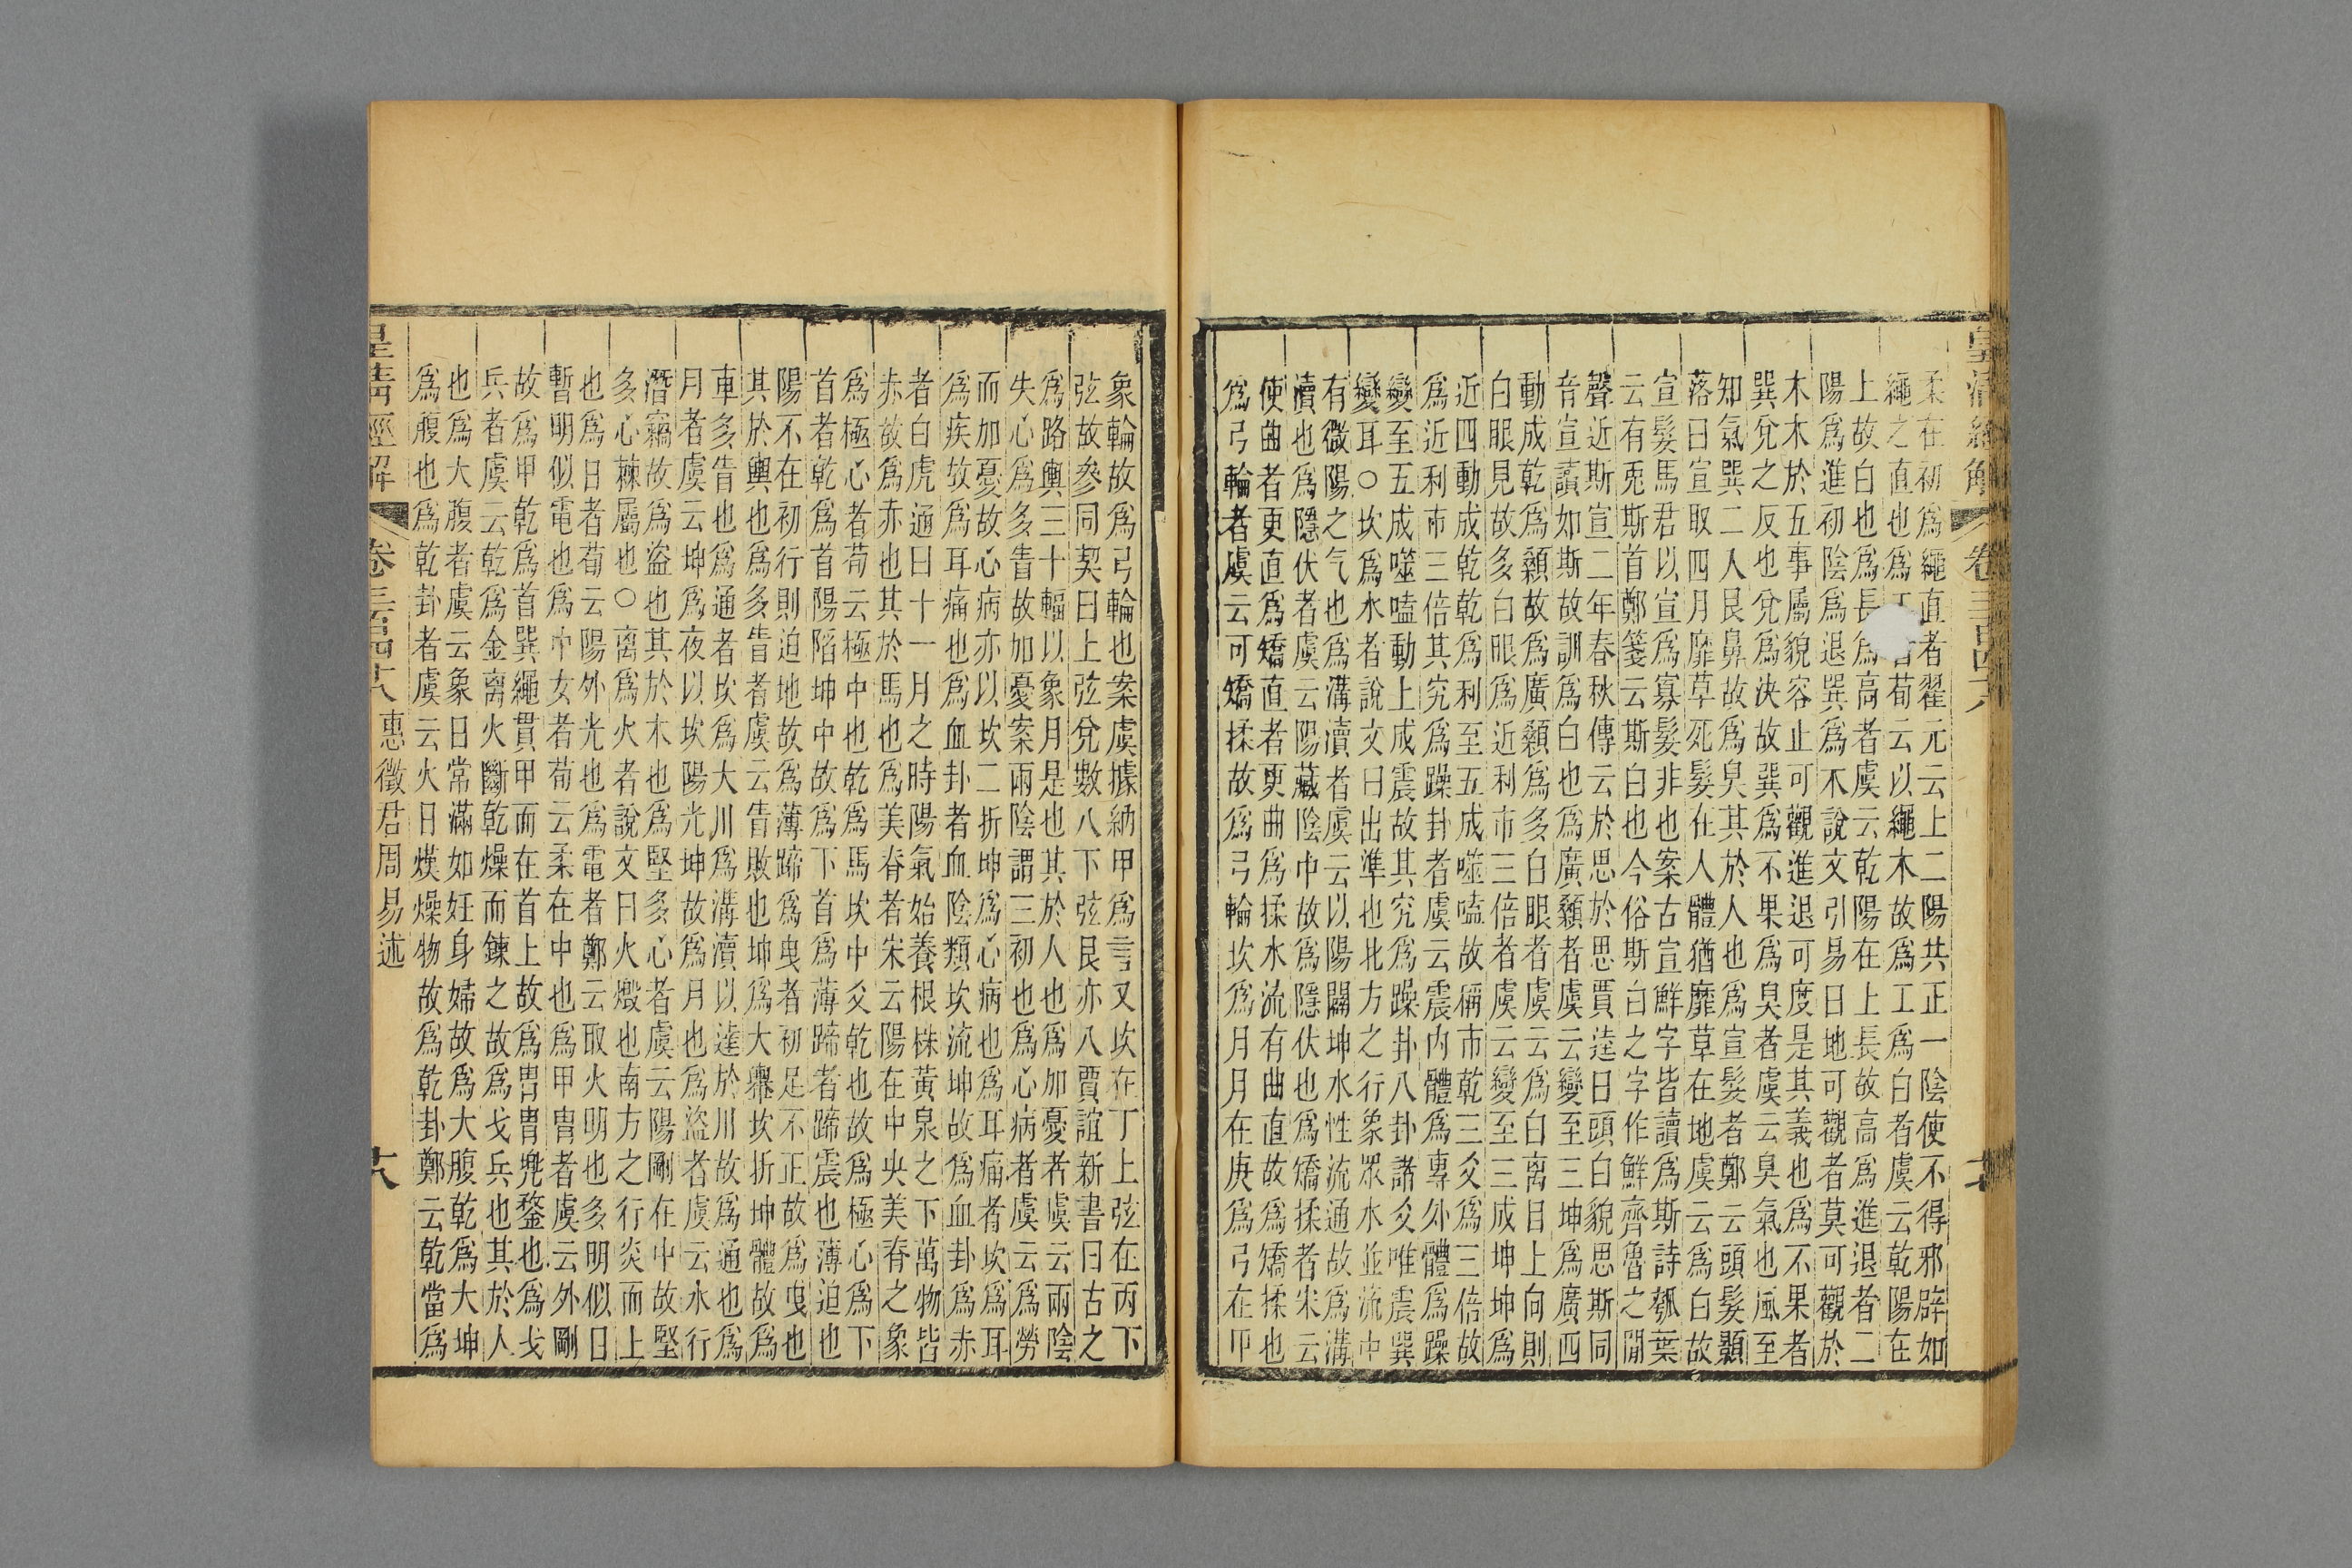 皇清經解 卷三百四十八
柔在初爲繩直者翟元云上二陽共正一陰使不得邪辟如
繩之直也爲者荀云以繩木故爲工爲白者虞云乾陽在
上故白也爲長爲高者虞云乾陽在上長故高爲進退者二
陽爲進初陰爲退巽爲木說文引易曰地可觀者莫可觀於
木木於五事屬貌容止可觀進退可度是其義也爲不果者
巽兌之反也兌爲決故巽爲不果爲臭者虞云臭氣也風至
知氣巽二人艮鼻故爲臭其於人也爲宣髮者鄭云頭髮顥
落曰宣取四月靡草死髮在人體猶靡草在地虞云爲白故
宣髮馬君以宣爲寡髮非也案古宣鮮字皆讀爲斯詩瓠葉
云有兎斯首鄭箋云斯白也今俗斯白之字作鮮齊魯之閒
聲近斯宣二年春秋傳云於思於思賈逵曰頭白貌思斯同
音宣讀如斯故訓爲白也爲廣顙者虞云變至三坤爲廣四
動成乾爲顙故爲廣顙爲多白眼者虞云爲白離目上向則
白眼見故多白眼爲近利市三倍者虞云變至三成坤坤爲
近四動成乾乾爲利至五成噬嗑故稱市乾三爻爲三倍故
爲近利市三倍其究爲躁卦者虞云震內體爲專外體爲躁
變至五成噬嗑動上成震故其究爲躁卦八卦諸爻唯震巽
變耳○坎爲水者說文曰出準也北方之行象眾水並流中
有微陽之气也爲溝瀆者虞云以陽闢坤水性流通故爲溝
瀆也爲隱伏者虞云陽藏陰中故爲隱伏也爲矯揉者宋云
使曲者更直爲矯直者更曲爲揉水流有曲直故爲矯揉也
爲弓輪者虞云可矯揉故爲弓輪坎爲月月在庚爲弓在甲
象輪故爲弓輪也案虞據納甲爲言又坎在丁上弦在丙下
弦故參同契曰上弦兌數八下弦艮亦八賈誼新書曰古之
爲路輿三十輻以象月是也其於人也爲加憂者虞云兩陰
失心爲多眚故加憂案兩陰謂三初也爲心病者虞云爲勞
而加憂故心病亦以坎二折坤爲心病也爲耳痛者坎爲耳
爲疾故爲耳痛也爲血卦者血陰類坎流坤故爲血卦爲赤
者白虎通曰十一月之時陽氣始養根株黃泉之下萬物皆
赤故爲赤也其於馬也爲美脊者宋云陽在中央美脊之象
爲極心者荀云極中也乾爲馬坎中爻乾也故爲極心爲下
首者乾爲首陽陷坤中故爲下首爲薄蹄者蹄震也薄迫也
陽不在初行則迫地故爲薄蹄爲曳者初足不正故爲曳也
其於輿也爲多眚者虞云眚敗也坤爲大轝坎折坤體故爲
車多眚也爲通者坎爲大川爲溝瀆以達於川故爲通也爲
月者虞云坤爲夜以坎陽光坤故爲月也爲盜者虞云水行
潛竊故爲盜也其於木也爲堅多心者虞云陽剛在中故堅
多心棘屬也○离爲火者說文曰火燬也南方之行炎而上
也爲日者荀云陽外光也爲電者鄭云取火明也多明似日
暫明似電也爲中女者荀云柔在中也爲甲冑者虞云外剛
故爲甲乾爲首巽繩貫甲而在首上故爲冑冑兜鍪也爲戈
兵者虞云乾爲金离火斷乾燥而鍊之故爲戈兵也其於人
也爲大腹者虞云象日常滿如妊身婦故爲大腹乾爲大坤
爲腹也爲乾卦者虞云火日熯燥物故爲乾卦鄭云乾當爲
皇清經解 卷三百四十八 惠徵君周易述 六